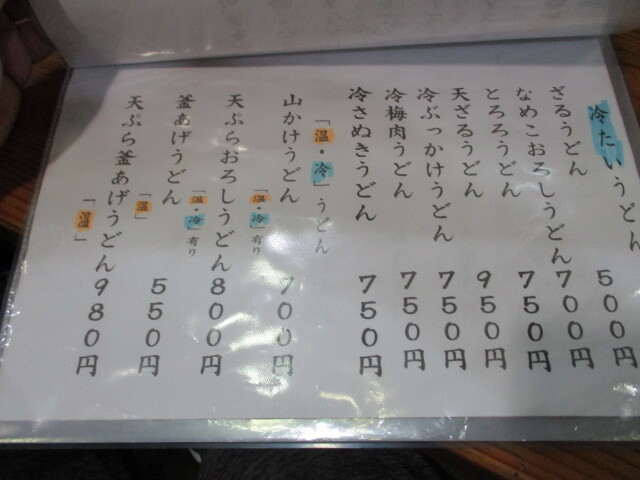 冷たいうどん
ざるうどん 500円
なめこおろしうどん 700円
とろろうどん 750円
天ざるうどん 950円
冷ぶっかけうどん 750円
冷梅肉うどん 750円
冷さぬきうどん 750円
「温・冷」うどん
山かけうどん 700円
「温・冷」有り
天ぷらおろしうどん 800円
「温・冷」有り
釜あげうどん 550円
「温」
天ぷら釜あげうどん 980円
「温」